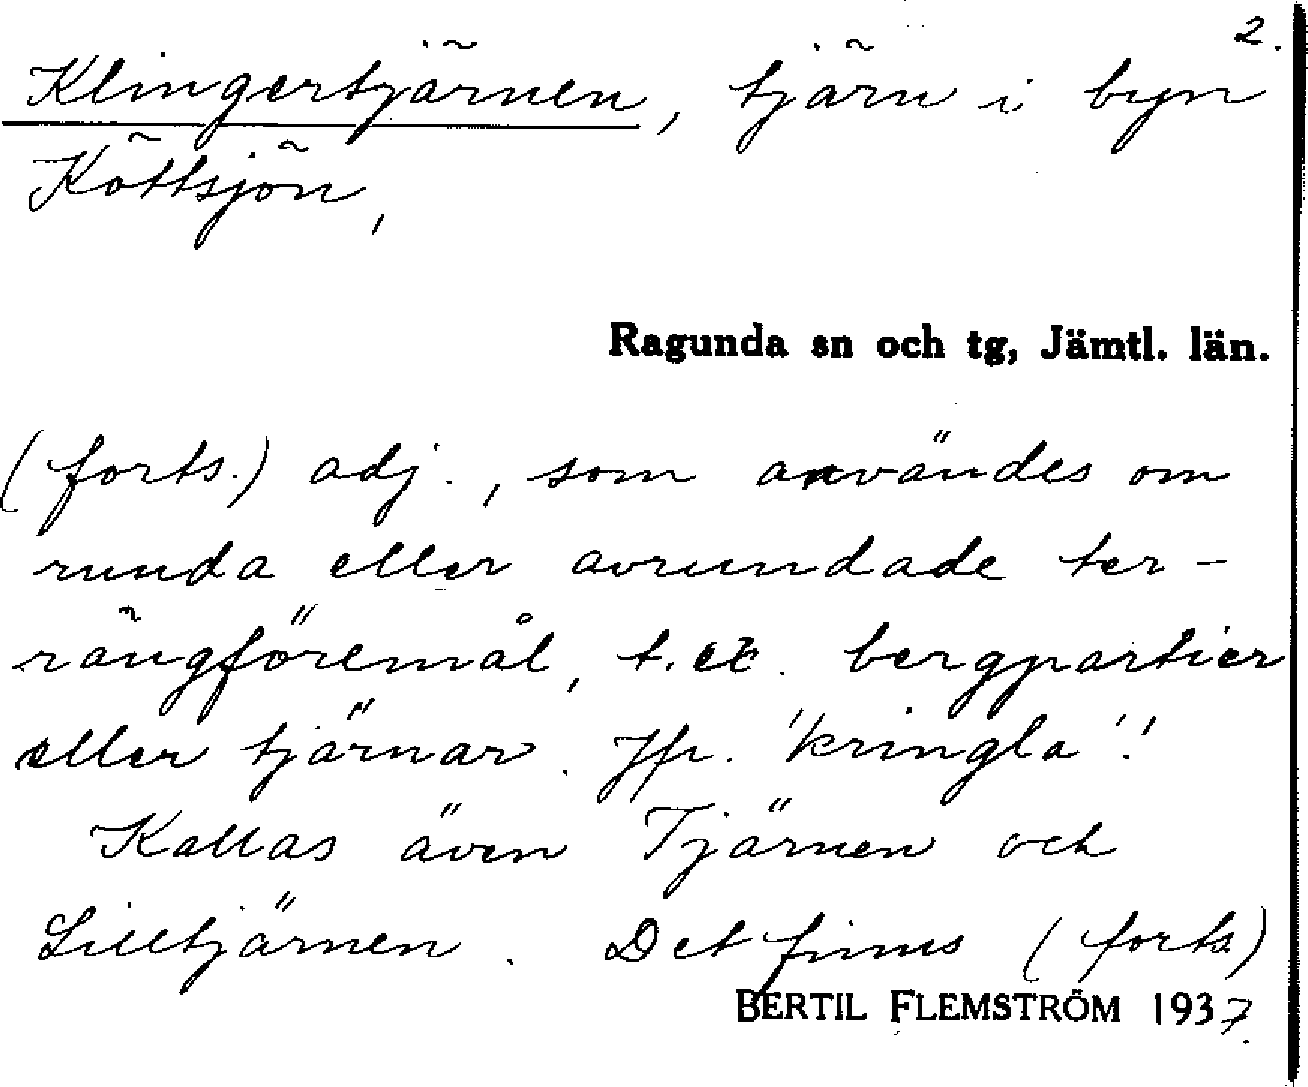 2.
Klingertjärnen, tjärn i byn
Köttsjön,
Ragunda sn och tg, Jämtl. län.
(forts.) adj., som användes om
runda eller avrundade ter-
rängföremål, t. ex. bergpartier
eller tjärnar. Jfr. "kringla".
Kallas även Tjärnen och
Lilltjärnen. Det finns (forts.)
BERTIL FLEMSTRÖM 1937.